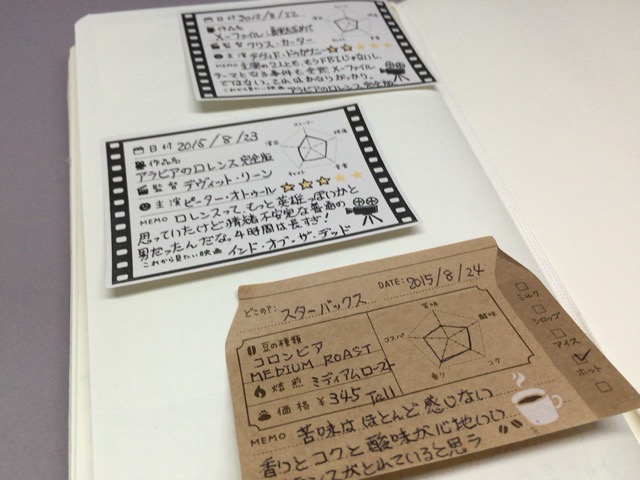 日付 2015/8/22
作品名
X-ファイル:真実を求めて
監督 クリス・カーター
主演 デヴィド・ドゥカヴニー
MEMO 主演の2人とも、もうFBIじゃないし、
テーマとなる事件も全然X-ファイル
ではない。これはかなりがっかり。
これから見たい映画 アラビアのロレンス完全版
日付 2015/8/23
作品名
アラビアのロレンス 完全版
監督 デヴィット・リーン
主演 ピーター・オトゥール
ストーリー
映像
音楽
キャスト
演出
MEMO ロレンスって、もっと英雄っぽいかと
思っていたけど情緒不安定な普通の
男だったんだな。4時間は長すぎ!
これから見たい映画 インド・オブ・ザ・デッド
どこの?: スターバックス
DATE: 2015/8/24
豆の種類
コロンビア
MEDIUM ROAST
焙煎 ミディアムロースト
価格 ¥345 Tall
苦味
酸味
コク
香り
コスパ
ミルク
シロップ
アイス
ホット
MEMO 苦味はほとんど感じない
香りとコクと酸味が心地いい
バランスがとれていると思う